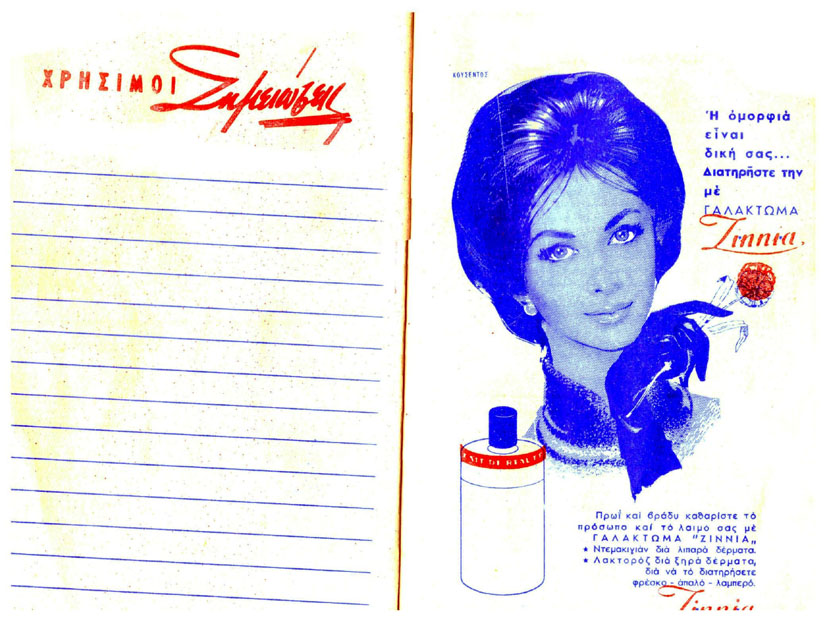 ΧΡΗΣΙΜΟΙ Σημειώσεις
ΚΟΥΣΕΝΤΟΣ
Ἡ ὀμορφιὰ
εἶναι
δική σας...
Διατηρῆστε την
μὲ
ΓΑΛΑΚΤΩΜΑ
Zinnia,
LAIT DE BEAUTE
Πρωῒ καὶ βράδυ καθαρίστε τὸ
πρόσωπο καὶ τὸ λαιμο σας μὲ
ΓΑΛΑΚΤΩΜΑ "ΖΙΝΝΙΑ„
★ Ντεμακιγιὰν διὰ λιπαρὰ δέρματα.
★ Λακτορὸζ διὰ ξηρὰ δέρματα,
διὰ νὰ τὸ διατηρήσετε
φρέσκο - ἁπαλό - λαμπερό.
Zinnia